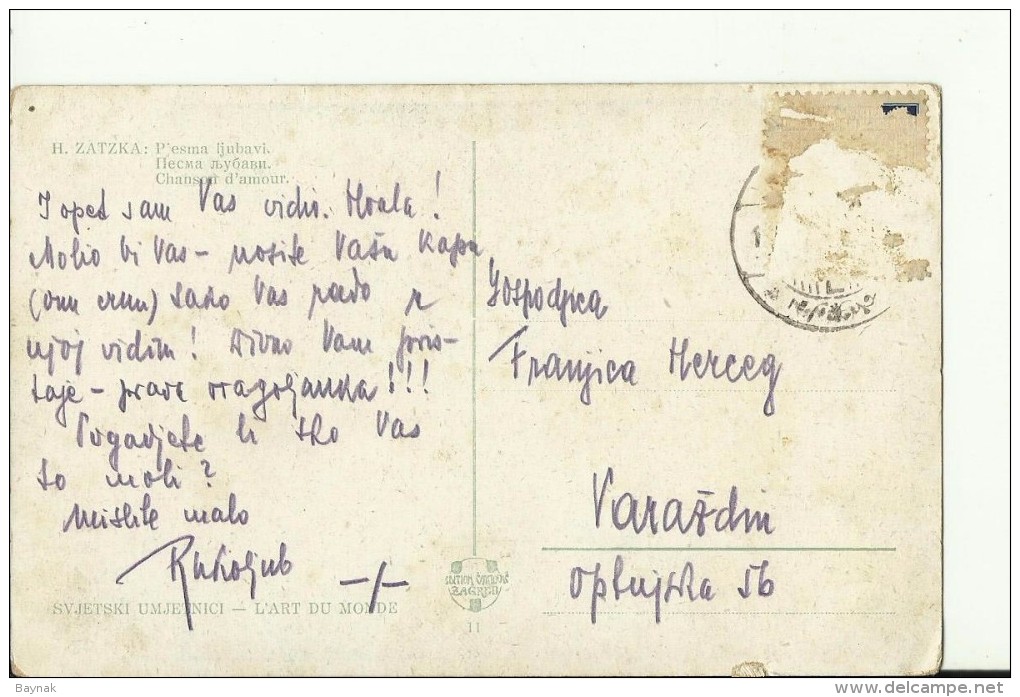 H. ZATZKA: Pjesma ljubavi.
Песма љубави.
Chanson d'amour.
I opet sam Vas vidio. Hvala!
Molio bi Vas - nosite Vašu kapu
(onu crnu) tako Vas rado u
njoj vidim! Divno Vam pris-
taje - prava !!!
Pogadjate li tko Vas
to moli?
Mislite malo
Rukoljub
Gospodjica
Franjica Herceg
Varaždin
Optujska 56
SVJETSKI UMJETNICI — L'ART DU MONDE
ZAGREB
11
Baynak
delcampe.net